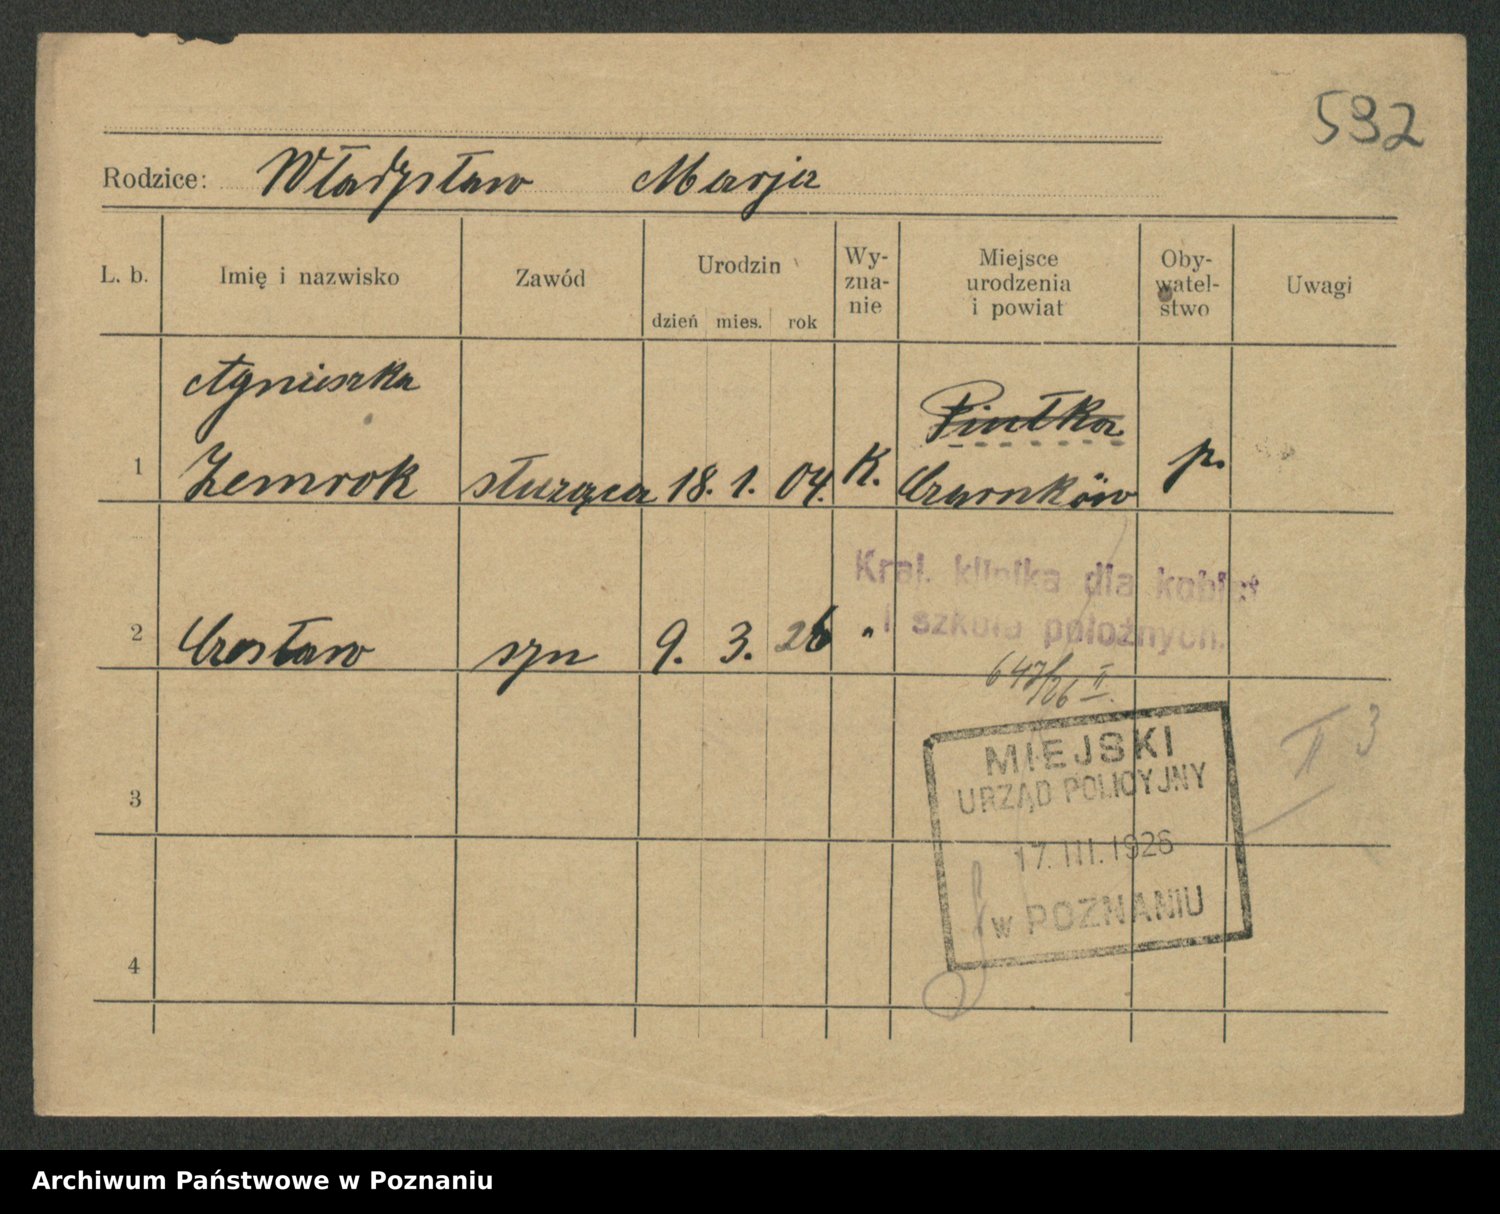 532
Rodzice: Władysław Marja
L. b. Imię i nazwisko Zawód Urodzin Wy-
zna-
nie Miejsce
urodzenia
i powiat Oby-
watel-
stwo Uwagi
dzień mies. rok
Agnieszka
Piutka
1 Zemrok służąca 18. 1. 04. K. Czarnków p.
Kraj. klinika dla kobiet
i szkoła położnych.
2 Czesław syn 9. 3. 26 "
647/26 II.
MIEJSKI
URZĄD POLICYJNY
17. III. 1926
w POZNANIU
II 3
3
4
Archiwum Państwowe w Poznaniu